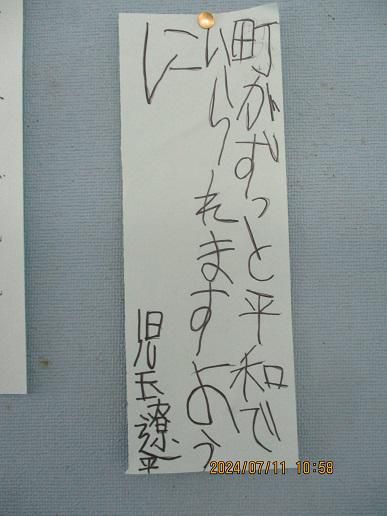 町がずっと平和で
いられますよう
に
児玉遼平
2024/07/11 10:58